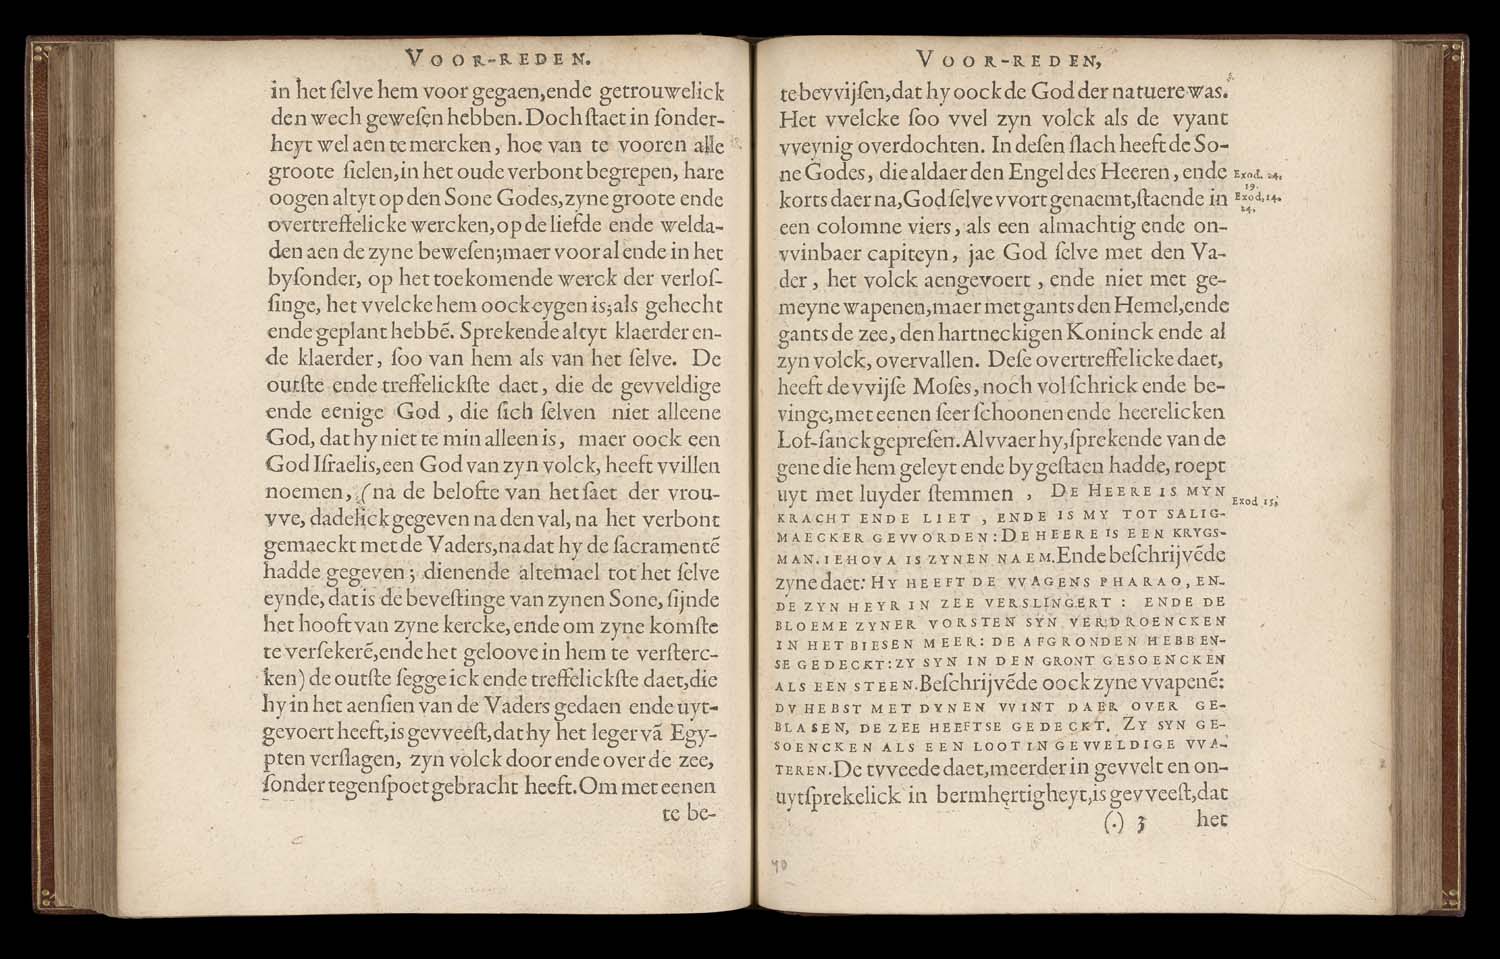 VOOR-REDEN.
in het ſelve hem voor gegaen,ende getrouwelick
den wech geweſen hebben. Doch ſtaet in ſonder-
heyt wel aen te mercken, hoe van te vooren alle
groote ſielen,in het oude verbont begrepen, hare
oogen altyt op den Sone Godes,zyne groote ende
overtreffelicke wercken,op de liefde ende welda-
den aen de zyne beweſen;maer voor al ende in het
byſonder, op het toekomende werck der verloſ-
ſinge, het vvelcke hem oock eygen is;als gehecht
ende geplant hebbē. Sprekende altyt klaerder en-
de klaerder, ſoo van hem als van het ſelve. De
outſte ende treffelickſte daet, die de gevveldige
ende eenige God, die ſich ſelven niet alleene
God, dat hy niet te min alleen is, maer oock een
God Iſraelis,een God van zyn volck, heeft vvillen
noemen, (na de belofte van het ſaet der vrou-
vve, dadelick gegeven na den val, na het verbont
gemaeckt met de Vaders,na dat hy de ſacramentē
hadde gegeven; dienende altemael tot het ſelve
eynde, dat is de beveſtinge van zynen Sone, ſijnde
het hooft van zyne kercke, ende om zyne komſte
te verſekerē,ende het geloove in hem te verſterc-
ken) de outſte ſegge ick ende treffelickſte daet,die
hy in het aenſien van de Vaders gedaen ende uyt-
gevoert heeft,is gevveeſt,dat hy het leger vā Egy-
pten verſlagen, zyn volck door ende over de zee,
ſonder tegenſpoet gebracht heeft. Om met eenen
te be-
VOOR-REDEN,
te bevvijſen,dat hy oock de God der natuere was.
Het vvelcke ſoo vvel zyn volck als de vyant
vveynig overdochten. In deſen ſlach heeft de So-
ne Godes, die aldaer den Engel des Heeren, ende
Exod. 14,
19.
korts daer na,God ſelve vvort genaemt,ſtaende in
Exod,14.
24,
een colomne viers, als een almachtig ende on-
vvinbaer capiteyn, jae God ſelve met den Va-
der, het volck aengevoert, ende niet met ge-
meyne wapenen,maer met gants den Hemel,ende
gants de zee, den hartneckigen Koninck ende al
zyn volck, overvallen. Deſe overtreffelicke daet,
heeft de vvijſe Moſes, noch vol ſchrick ende be-
vinge,met eenen ſeer ſchoonen ende heerelicken
Lof-ſanck gepreſen. Al vvaer hy,ſprekende van de
gene die hem geleyt ende by geſtaen hadde, roept
uyt met luyder ſtemmen, DE HEERE IS MYN
Exod 15,
KRACHT ENDE LIET, ENDE IS MY TOT SALIG-
MAECKER GEVVORDEN: DE HEERE IS EEN KRYGS-
MAN. IEHOVA IS ZYNEN NAEM. Ende beſchrijvēde
zyne daet: HY HEEFT DE VVAGENS PHARAO, EN-
DE ZYN HEYR IN ZEE VERSLINGERT : ENDE DE
BLOEME ZYNER VORSTEN SYN VERDROENCKEN
IN HET BIESEN MEER: DE AFGRONDEN HEBBEN-
SE GEDECKT: ZY SYN IN DEN GRONT GESOENCKEN
ALS EEN STEEN. Beſchrijvēde oock zyne vvapenē:
DV HEBST MET DYNEN VVINT DAER OVER GE-
BLASEN, DE ZEE HEEFTSE GEDECKT. ZY SYN GE-
SOENCKEN ALS EEN LOOT IN GEVVELDIGE VVA-
TEREN. De tvveede daet,meerder in gevvelt en on-
uytſprekelick in bermhertigheyt,is gevveeſt,dat
(.) 3 het